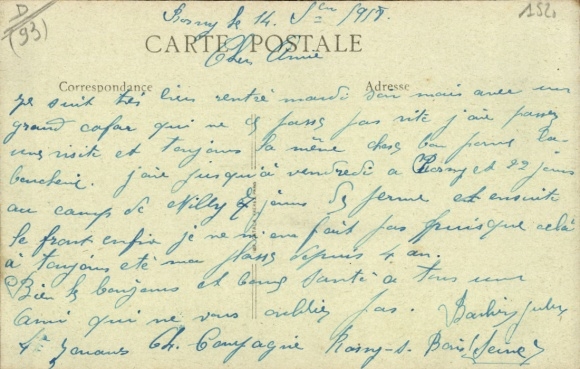 D
(93)
152
Rosny le 14 1918.
CARTE POSTALE
Cher Amie
Correspondance
Adresse
Je suit très bien rentré mardi mais avec un
grand cafar qui ne passe pas vite j'aie passer
une visite et toujours la même chose bon pour la
boucherie. j'aie jusqu'à vendredi a Rosny et 22 jours
au camps de Milly jours de ferme et ensuite
le front enfin je ne m'en fait pas puisque cela
à toujours eté ma place depuis 4 an.
Bien le bonjours et bonne santé a tous un
ami qui ne vous oublies pas. Barbier Jules
4e Zouaves Ch. Compagnie Rosny-s. Bois (Seine)